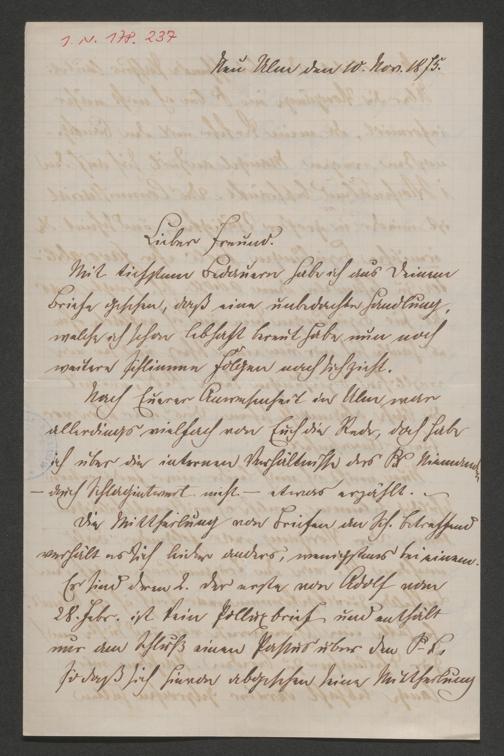 I. N. 178.237
Neu Ulm den 10. Nov. 1875.
Lieber Freund.
Mit tiefstem Bedauern habe ich aus Deinem
Briefe gesehen, daß eine unbedachte Handlung,
welche ich schon lebhaft bereut habe nun noch
weitere schlimme Folgen nach sich zieht.
Nach Eurer Anwesenheit in Ulm war
allerdings vielfach von Euch die Rede, doch habe
ich über die internen Verhältnisse des PB Niemand
– auch nicht – etwas erzählt. –
Die Mittheilung von Briefen an Sch. betreffend
verhält es sich leider anders, wenigstens bei einem.
Es sind deren 2. Der erste von Adolf vom
28. Febr. ist kein und enthält
nur am Schluß einen Passus über den P. B.,
so daß sich hievon abgesehen seine Mittheilung